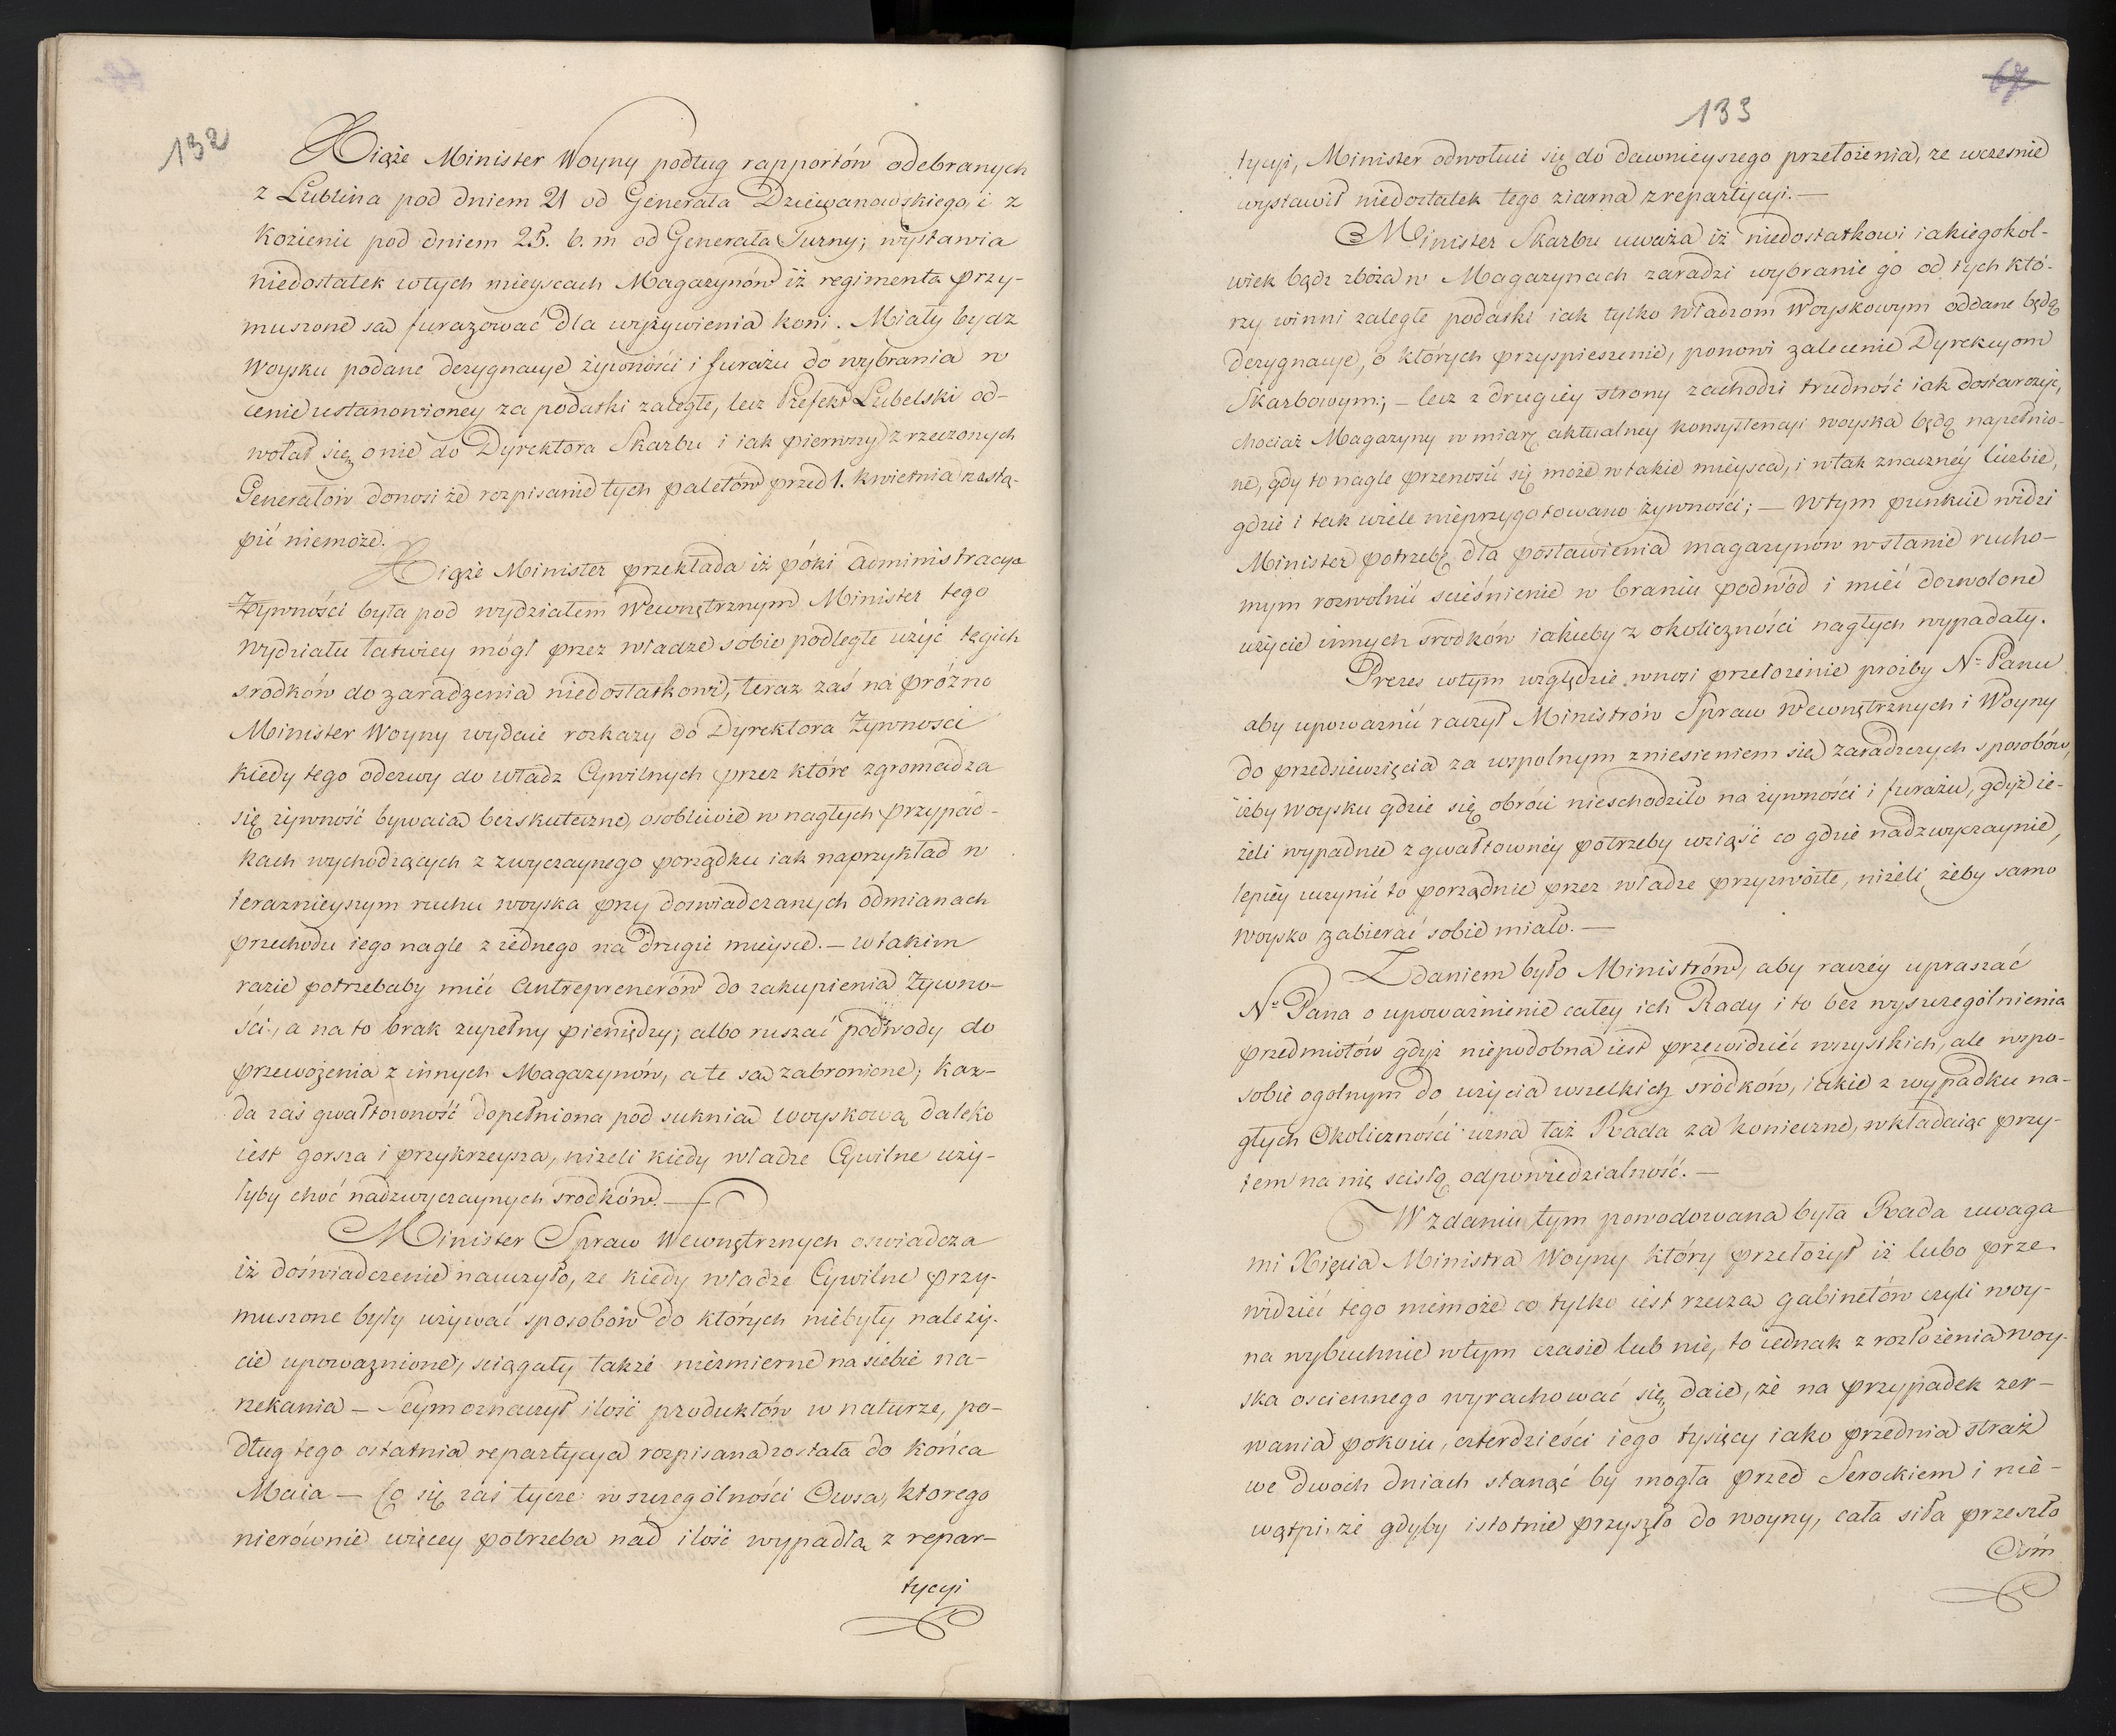 132
Xiąże Minister Woyny podług rapportów odebranych
z Lublina pod dniem 21 od Generała Dziewanowskiego i z
Kozienic pod dniem 25. b. m od Generała Turny; wystawia
niedostatek w tych mieyscach Magazynów iż regimenta przy-
muszone są furażować dla wyżywienia koni. Miały bydz
Woysku podane dezygnacye żywności i furażu do wybrania w
cenie ustanowioney za podatki zaległe, lecz Prefekt Lubelski od-
wołał się o nie do Dyrektora Skarbu i iak pierwszy z rzeczonych
Generałów donosi że rozpisanie tych paletów przed 1. kwietnia nastą-
pić niemoże.
Xiąże Minister przekłada iż póki administracya
Żywności była pod wydziałem Wewnętrznym Minister tego
wydziału łatwiey mógł przez władze sobie podległe użyć tęgich
srodków do zaradzenia niedostatkowi, teraz zaś na próżno
Minister Woyny wydaie rozkazy do Dyrektora Żywnosci
kiedy tego odezwy do władz Cywilnych przez które zgromadza
się żywność bywaią bezskuteczne, osobliwie w nagłych przypad-
kach wychodzących z zwyczaynego porządku iak naprzykład w
teraznieyszym ruchu woyska przy doswiadczanych odmianach
przechodu iego nagle z iednego na drugie mieysce. — w takim
razie potrzebaby mieć Antreprenerów do zakupienia Żywno-
ści, a na to brak zupełny pieniędzy; albo ruszać podwody do
przewożenia z innych Magazynów, a te są zabronione; Każ-
da zaś gwałtowność dopełniona pod suknią woyskową daleko
iest gorsza i przykrzeysza, niżeli kiedy władze Cywilne uży-
łyby choć nadzwyczaynych srodków. —
Minister Spraw Wewnętrznych oswiadcza
iż doświadczenie nauczyło, ze kiedy władze Cywilne przy-
muszone były używać sposobów do których niebyły należy-
cie upoważnione, sciągały także niezmierne na siebie na-
rzekania — Seym oznaczył ilość produktów w naturze, po-
dług tego ostatnia repartycya rozpisana została do końca
Maia — Co się zaś tycze w szczególności Owsa, ktorego
nierównie więcey potrzeba nad ilość wypadłą z repar-
tycyi
67
133
tycyi, Minister odwołuie się do dawnieyszego przełożenia, ze wczesnie
wystawił niedostatek tego ziarna z repartycyi. —
Minister Skarbu uważa iż niedostatkowi iakiegokol-
wiek bądz zboża w Magazynach zaradzi wybranie go od tych któ-
rzy winni zaległe podatki iak tylko władzom Woyskowym oddane będą
dezygnacye, o których przyspieszenie, ponowi zalecenie Dyrekcyom
Skarbowym; — lecz z drugiéy strony zachodzi trudność iak dostarczyć,
chociaż Magazyny w miarę aktualney konsystencyi woyska będą napełnio-
ne, gdy to nagle przenosić się może w takie mieysca, i w tak znaczney liczbie,
gdzie i tak wiele nieprzygotowano żywności; — W tym punkcie widzi
Minister potrzebę dla postawienia magazynów w stanie rucho-
mym rozwolnić scieśnienie w braniu podwód i mieć dozwolone
użycie innych srodków iakieby z okoliczności nagłych wypadały.
Prezes w tym względzie wnosi przełożenie proźby N. Panu
aby upoważnić raczył Ministrów Spraw Wewnętrznych i Woyny
do przedsiewzięcia za wspolnym zniesieniem się zaradczych sposobów,
iżby woysku gdzie się obróci nieschodziło na żywności i furażu, gdyż ie-
żeli wypadnie z gwałtownéy potrzeby wziąść co gdzie nadzwyczaynie,
lepiéy uczynić to porządnie przez władze przyzwoite, niżeli żeby samo
woysko zabierać sobie miało. —
Zdaniem było Ministrów, aby raczéy upraszać
N. Pana o upoważnienie całey ich Rady i to bez wyszczególnienia
przedmiotów gdyż niepodobna iest przewidzieć wszystkich, ale w spo-
sobie ogolnym do użycia wszelkich srodków, iakie z wypadku na-
głych Okoliczności uzna taż Rada za konieczne, wkładaiąc przy-
tem na nię scisłą odpowiedzialność. —
W zdaniu tym powodowana była Rada uwaga
mi Xięcia Ministra Woyny który przełożył iż lubo prze-
widzieć tego niemoże co tylko iest rzeczą gabinetów czyli woy-
na wybuchnie w tym czasie lub nie, to iednak z rozłożenia woy-
ska osciennego wyrachować się daie, że na przypadek zer-
wania pokoiu, czterdzieści iego tysięcy iako przednia straż
we dwoch dniach stanąć by mogła przed Serockiem i nie-
wątpi, że gdyby istotnie przyszło do woyny, cała siła przeszło
Ośm